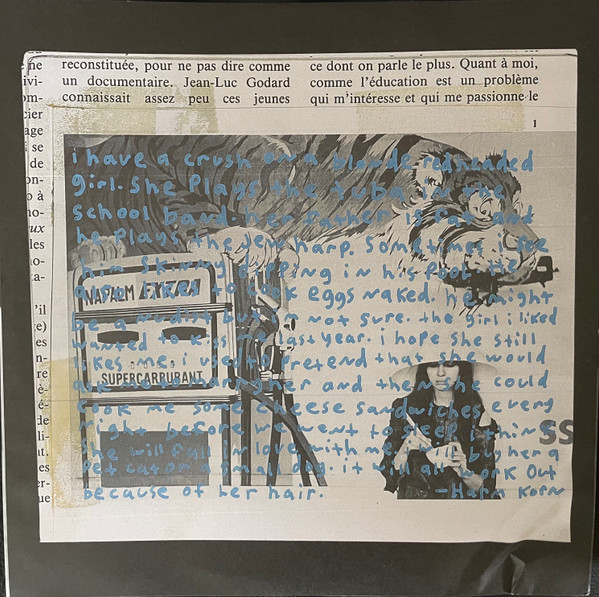 reconstituée, pour ne pas dire comme
un documentaire. Jean-Luc Godard
connaissait assez peu ces jeunes
ce dont on parle le plus. Quant à moi,
comme l'éducation est un problème
qui m'intéresse et qui me passionne le
1
i have a crush on a blonde redheaded
girl. she plays the tuba in the
school band. her father is fat and
he plays the jew harp. Sometimes i see
him skinny dipping in his pool. He
also likes to cook eggs naked. he might
be a nudist but i'm not sure. the girl i liked
wanted to kiss me last year. i hope she still
likes me. i used to pretend that she would
and then she could
cook me some cheese sandwiches every
night before we went to sleep. i think
she will fall in love with me. i will buy her a
pet cat or a small dog. it will all work out
because of her hair.
-Harm Korn
NAPALM EXTRA
SUPERCARBURANT
SS